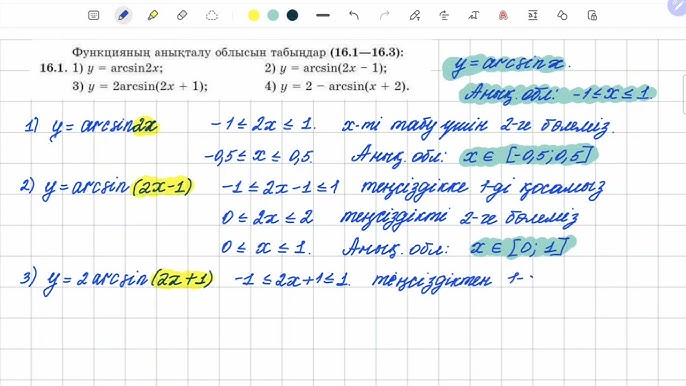 Функцияның анықталу облысын табыңдар (16.1—16.3):
16.1. 1) y = arcsin2x; 2) y = arcsin(2x − 1);
3) y = 2arcsin(2x + 1); 4) y = 2 − arcsin(x + 2).
y = arcsin x.
Анық. обл: -1 ≤ x ≤ 1.
1) y = arcsin 2x -1 ≤ 2x ≤ 1. x-ті табу үшін 2-ге бөлеміз.
-0,5 ≤ x ≤ 0,5. Анық. обл: x ∈ [-0,5; 0,5]
2) y = arcsin (2x-1) -1 ≤ 2x-1 ≤ 1 теңсіздікке 1-ді қосамыз
0 ≤ 2x ≤ 2 теңсіздікті 2-ге бөлеміз
0 ≤ x ≤ 1. Анық. обл: x ∈ [0; 1]
3) y = 2 arcsin (2x+1) -1 ≤ 2x+1 ≤ 1. теңсіздіктен 1-